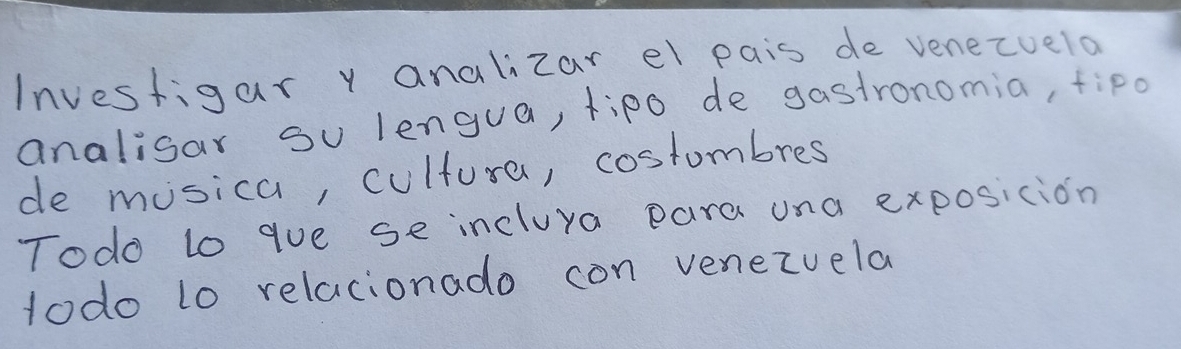 Investigar y analizar el pais de venezuela
analisar su lengua, tipo de gastronomia, tipo
de música, cultura, costumbres
Todo lo que se incluya para una exposición
todo lo relacionado con venezuela